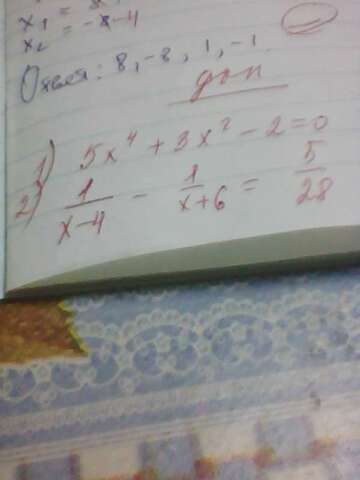 x₁ = 8,
x₂ = -8-4
Ответ: 8, -8, 1, -1.
доп
1) 5x⁴ + 3x² - 2 = 0
2) 1/(x-4) - 1/(x+6) = 5/28